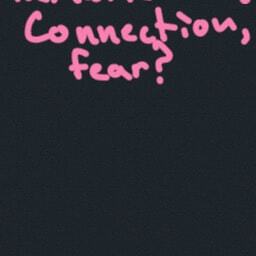 Connection,
fear?